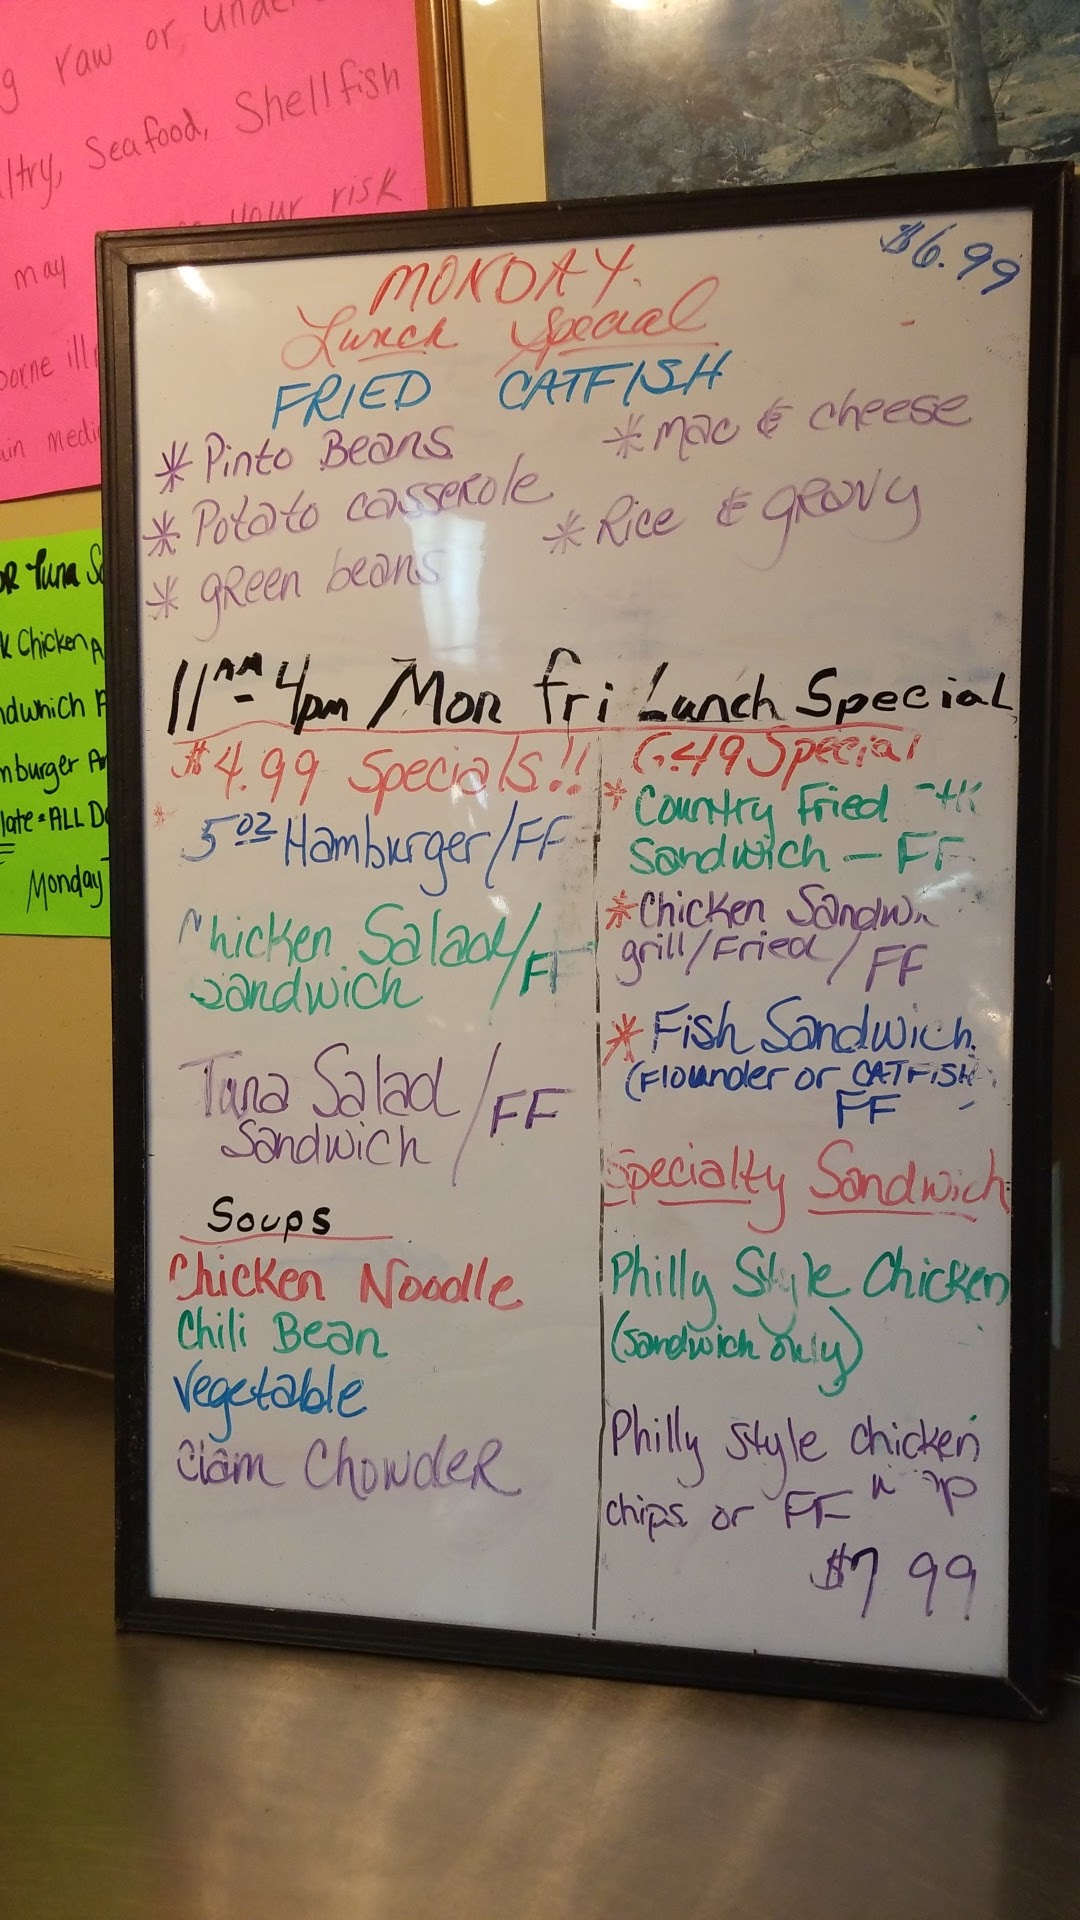 g raw or under
ltry, Seafood, Shellfish
your risk
may
borne ill
ain medi
OR Tuna S
k Chicken A
ndwhich
mburger A
late = ALL D
Monday
$6.99
MONDAY.
Lunch Special
FRIED CATFISH
* Pinto Beans
* mac & cheese
* Potato casserole
* Rice & gravy
* green beans
11AM - 4pm Mon fri Lunch Special
$4.99 Specials!!
5oz Hamburger/FF
Chicken Salad/
sandwich FF
Tuna Salad /
Sandwich FF
Soups
Chicken Noodle
Chili Bean
Vegetable
Clam Chowder
6.49 Special
* Country Fried
Sandwich - FF
* Chicken Sandw
grill/Fried/FF
* Fish Sandwich
(Flounder or CATFISH
FF
Specialty Sandwich
Philly Style Chicken
(sandwich only)
Philly Style chicken
chips or FF
$7 99